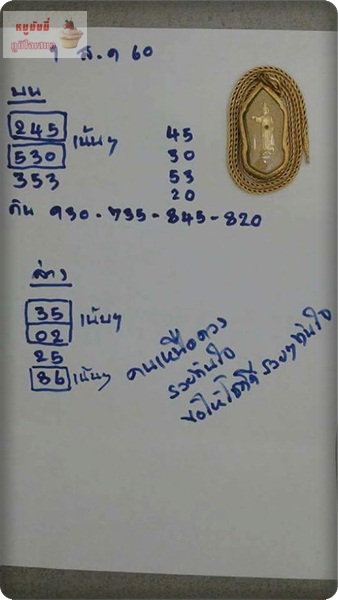 หมูยิมยี้
ภูมิใจเสนอ
1 ส.ค 60
บน
245 เน้นๆ 45
530 30
353 53
20
ต้น 930 - 735 - 845 - 820
ล่าง
35 เน้นๆ
02
25
86 เน้นๆ
คนเหนือดวง
รวยทันใจ
ขอให้โชคดี รวยๆทันใจ